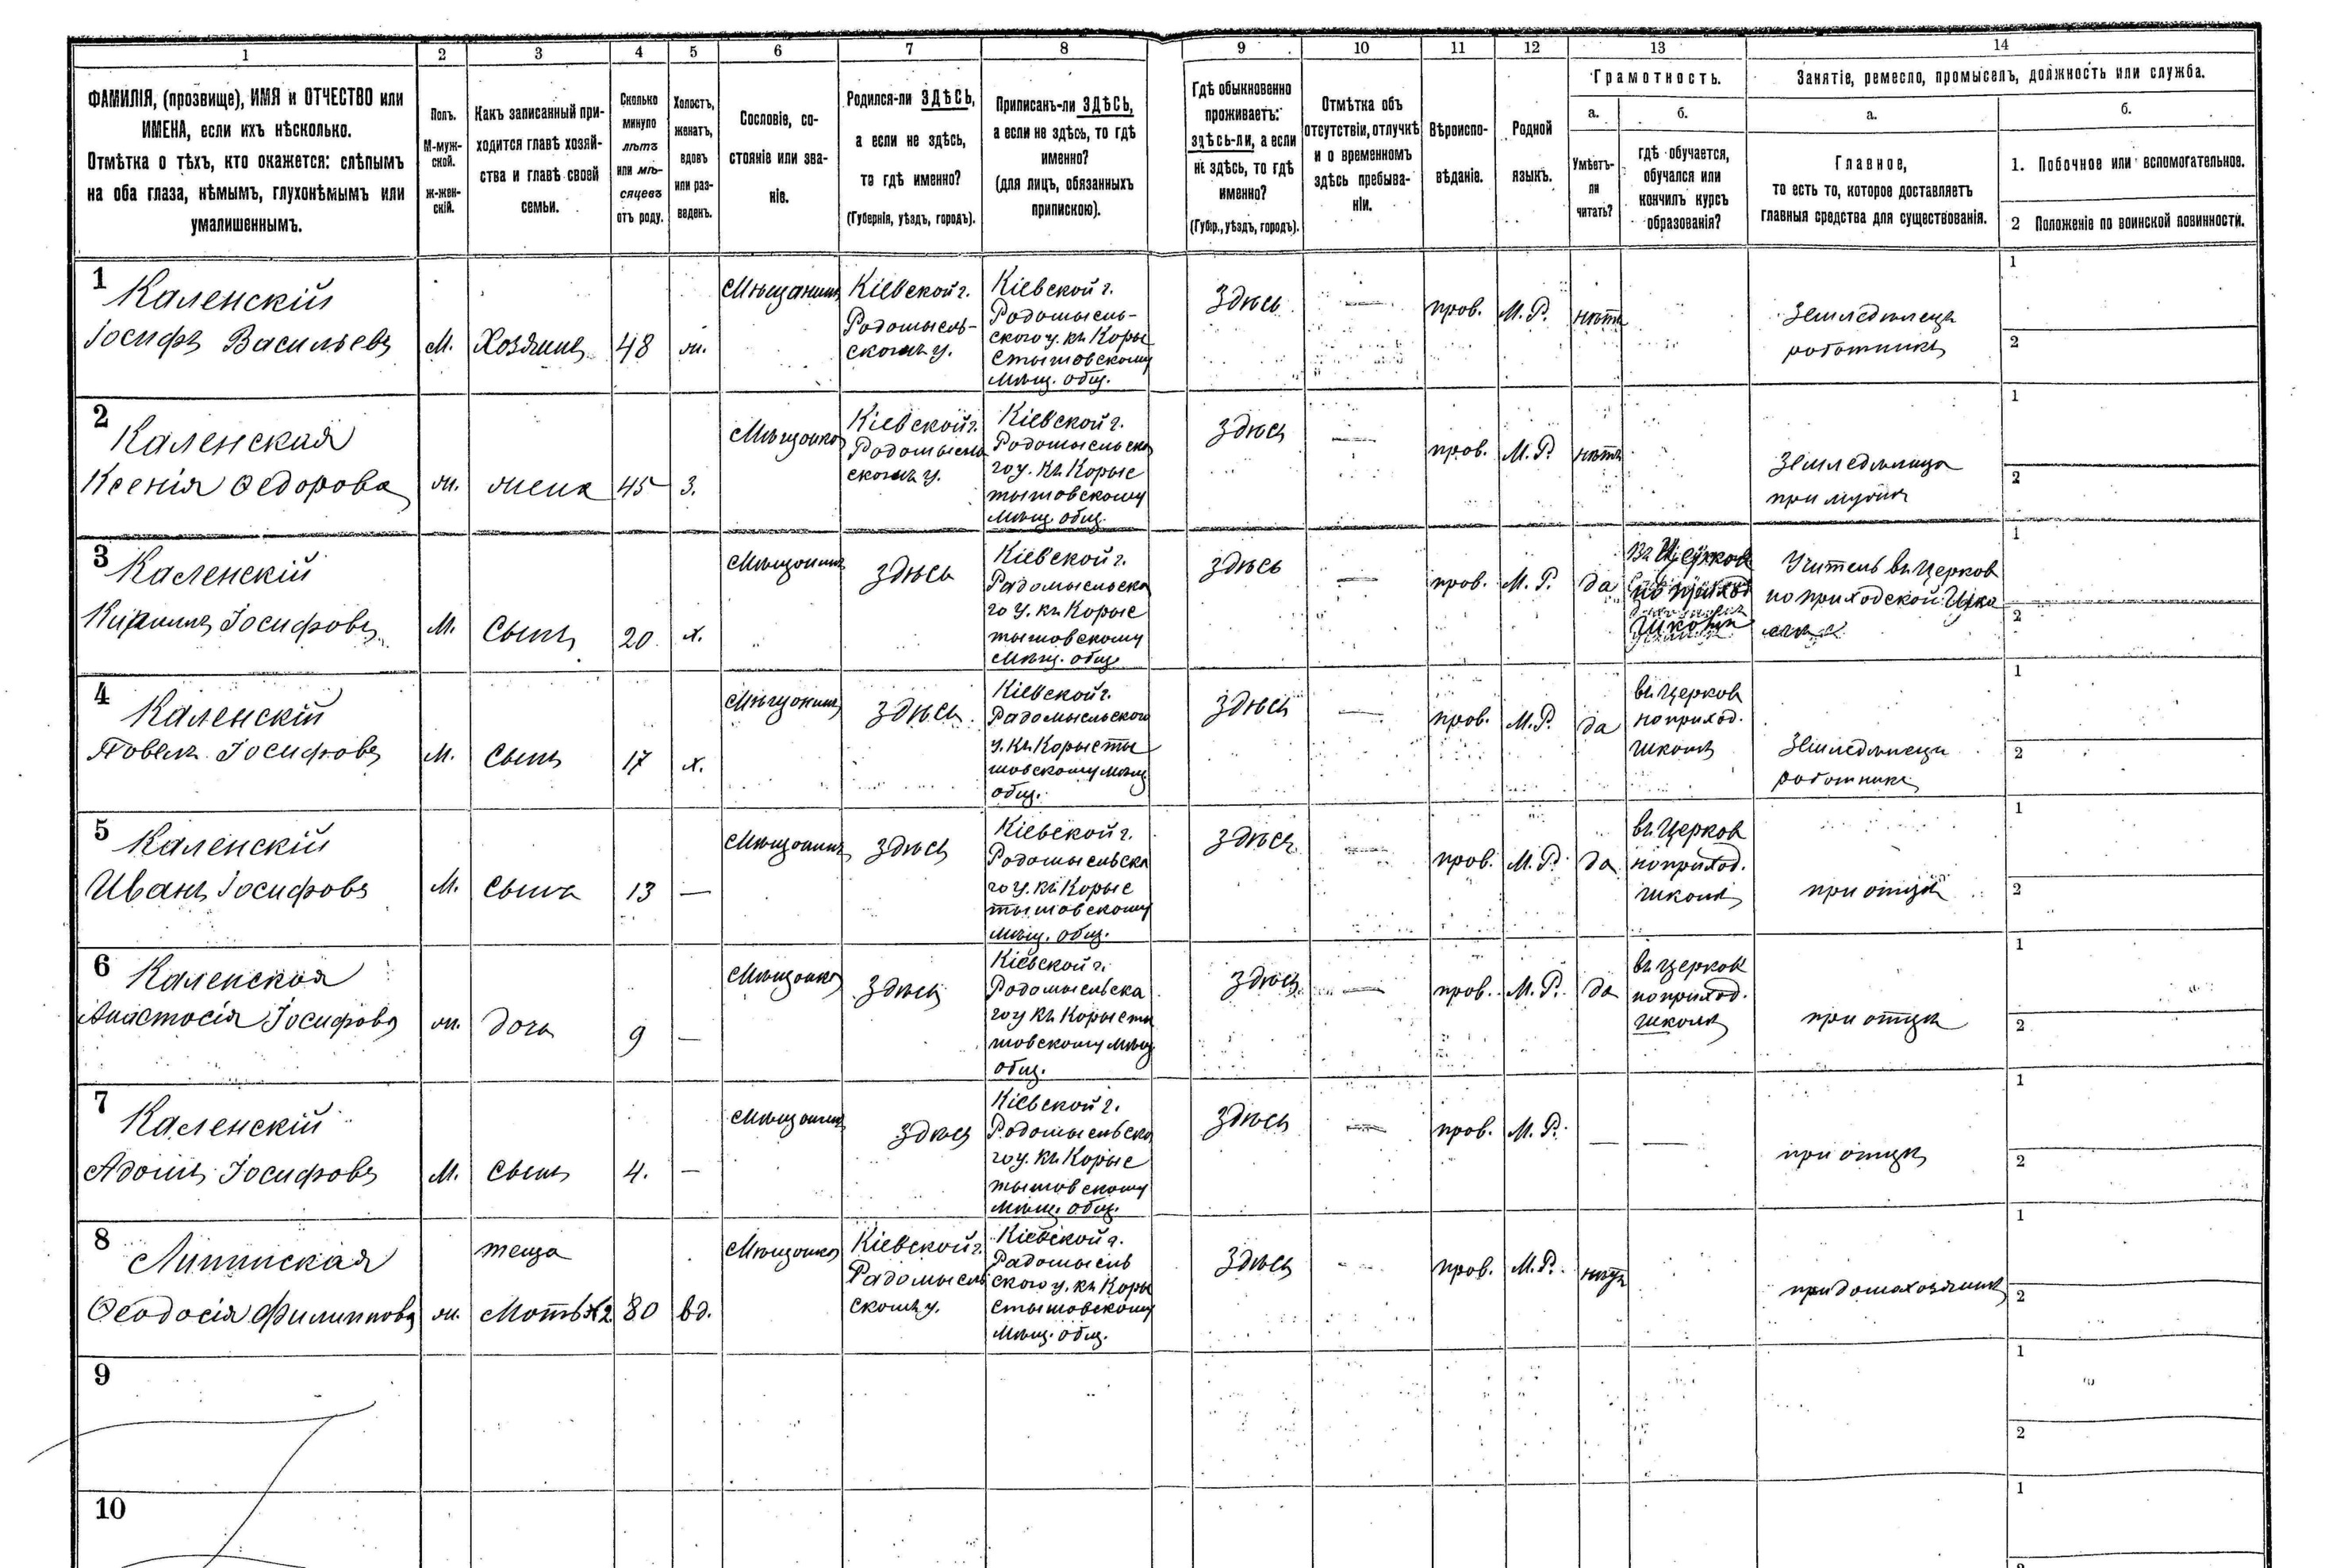 1 2 3 4 5 6 7 8 9 10 11 12 13 14
ФАМИЛІЯ, (прозвище), ИМЯ и ОТЧЕСТВО или
ИМЕНА, если ихъ нѣсколько.
Отмѣтка о тѣхъ, кто окажется: слѣпымъ
на оба глаза, нѣмымъ, глухонѣмымъ или
умалишеннымъ.
Полъ.
М-муж-
ской.
ж-жен-
скій.
Какъ записанный при-
ходится главѣ хозяй-
ства и главѣ своей
семьи.
Сколько
минуло
лѣтъ
или мѣ-
сяцевъ
отъ роду.
Холостъ,
женатъ,
вдовъ
или раз-
веденъ.
Сословіе, со-
стояніе или зва-
ніе.
Родился-ли ЗДѢСЬ,
а если не здѣсь,
то гдѣ именно?
(Губернія, уѣздъ, городъ).
Приписанъ-ли ЗДѢСЬ,
а если не здѣсь, то гдѣ
именно?
(для лицъ, обязанныхъ
припискою).
Гдѣ обыкновенно
проживаетъ:
здѣсь-ли, а если
не здѣсь, то гдѣ
именно?
(Губер., уѣздъ, городъ).
Отмѣтка объ
отсутствіи, отлучкѣ
и о временномъ
здѣсь пребыва-
ніи.
Вѣроиспо-
вѣданіе.
Родной
языкъ.
Грамотность.
а.
Умѣетъ-
ли
читать?
б.
гдѣ обучается,
обучался или
кончилъ курсъ
образованія?
Занятіе, ремесло, промыселъ, должность или служба.
а.
Главное,
то есть то, которое доставляетъ
главныя средства для существованія.
б.
1. Побочное или вспомогательное.
2 Положеніе по воинской повинности.
1
Каленскій
Іосифъ Васильевъ
М.
Хозяинъ
48
ж.
Мѣщанинъ
Кіевской г.
Родомысль-
скомъ у.
Кіевской г.
Родомысль-
ского у. къ Коры
стышовскому
мѣщ. общ.
здѣсь
—
прав.
М. Р.
нѣтъ
Земледѣлецъ
работникъ
1
2
2
Каленская
Ксенія Ѳедорова
ж.
жена
45
З.
Мѣщанка
Кіевской г.
Родомысль
скомъ у.
Кіевской г.
Родомысльска
го у. къ Корыс
тышовскому
мѣщ. общ.
здѣсь
—
прав.
М. Р.
нѣтъ
Земледѣлица
при мужѣ
1
2
3
Каленскій
Кириллъ Іосифовъ
М.
Сынъ
20
х.
Мѣщанинъ
здѣсь
Кіевской г.
Радомысльска
го у. къ Корыс
тышовскому
мѣщ. общ.
здѣсь
—
прав.
М. Р.
да
Учитель въ Церков
но приходской Шко
лѣ
1
2
4
Каленскій
Павелъ Іосифовъ
М.
Сынъ
17
х.
Мѣщанинъ
здѣсь
Кіевской г.
Радомысльского
у. къ Корысты
шовскому мѣщ
общ.
здѣсь
—
прав.
М. Р.
да
въ Церков
но приход.
школѣ
Земледѣлецъ
работникъ
1
2
5
Каленскій
Иванъ Іосифовъ
М.
Сынъ
13
—
Мѣщанинъ
здѣсь
Кіевской г.
Родомысльска
го у. къ Корыс
тышовскому
мѣщ. общ.
здѣсь
—
прав.
М. Р.
да
въ Церков
но приход.
школѣ
при отцѣ
1
2
6
Каленская
Анастасія Іосифова
ж.
дочь
9
—
Мѣщанка
здѣсь
Кіевской г.
Родомысльска
го у къ Корысты
шовскому мѣщ
общ.
здѣсь
—
прав.
М. Р.
да
въ Церков
но приход.
школѣ
при отцѣ
1
2
7
Каленскій
Адамъ Іосифовъ
М.
Сынъ
4.
—
Мѣщанинъ
здѣсь
Кіевской г.
Родомысльска
го у. къ Корыс
тышовскому
мѣщ. общ.
здѣсь
—
прав.
М. Р.
—
—
при отцѣ
1
2
8
Липинская
Ѳеодосія Филиппова
ж.
теща
Мать №2
80
вд.
Мѣщанка
Кіевской г.
Радомысль
скомъ у.
Кіевской г.
Радомысль
ского у. къ Коры
стышовскому
мѣщ. общ.
здѣсь
—
прав.
М. Р.
нѣтъ
при домохозяинѣ
1
2
9
1
2
10
1